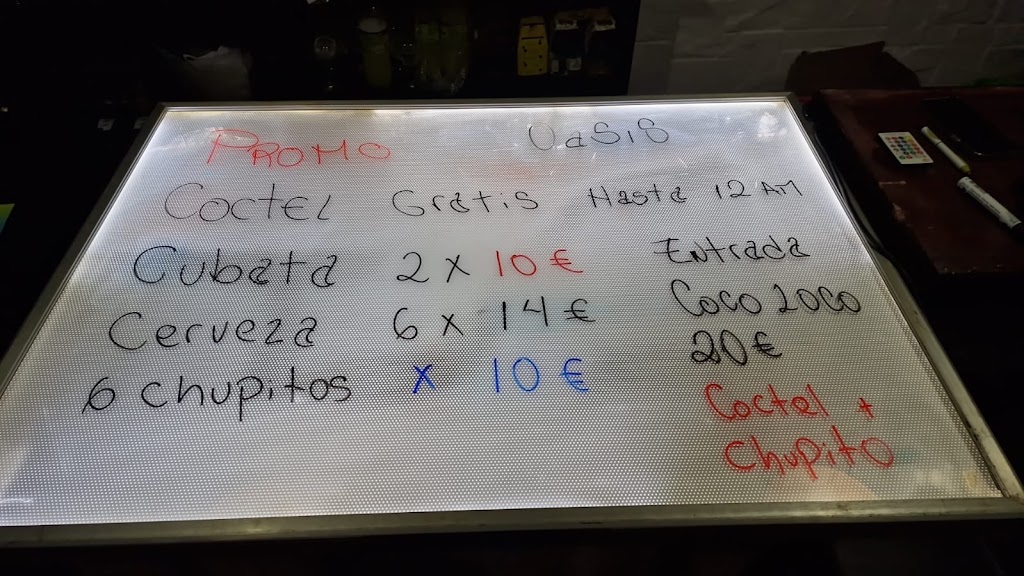 PROMO UaSiS
Coctel Gratis Hasta 12 AM
Cubata 2 x 10 €
Cerveza 6 x 14 €
6 chupitos x 10 €
Entrada
Coco Loco
20 €
Coctel +
Chupito